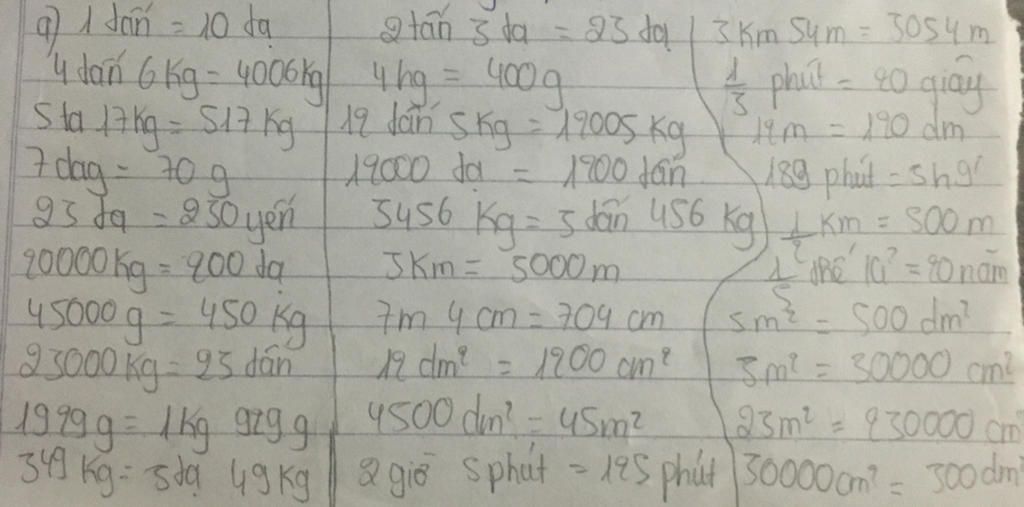 a) 1 tấn = 10 tạ
4 tấn 6 Kg = 4006 Kg
5 tạ 17 Kg = 517 Kg
7 dag = 70 g
23 tạ = 230 yến
20000 Kg = 200 tạ
45000 g = 450 Kg
23000 Kg = 23 tấn
1929 g = 1 Kg 929 g
349 Kg = 3 tạ 49 Kg
2 tấn 3 tạ = 23 tạ
4 hg = 400 g
12 tấn 5 Kg = 12005 Kg
12000 tạ = 1200 tấn
3456 Kg = 3 tấn 456 Kg
5 Km = 5000 m
7m 4 cm = 704 cm
12 dm² = 1200 cm²
4500 dm² = 45 m²
2 giờ 5 phút = 125 phút
3 Km 54 m = 3054 m
1/3 phút = 20 giây
12 m = 120 dm
189 phút = 3h 9'
1/2 Km = 500 m
1/5 thế kỉ = 20 năm
5 m² = 500 dm²
3 m² = 30000 cm²
23 m² = 230000 cm
30000 cm² = 300 dm²